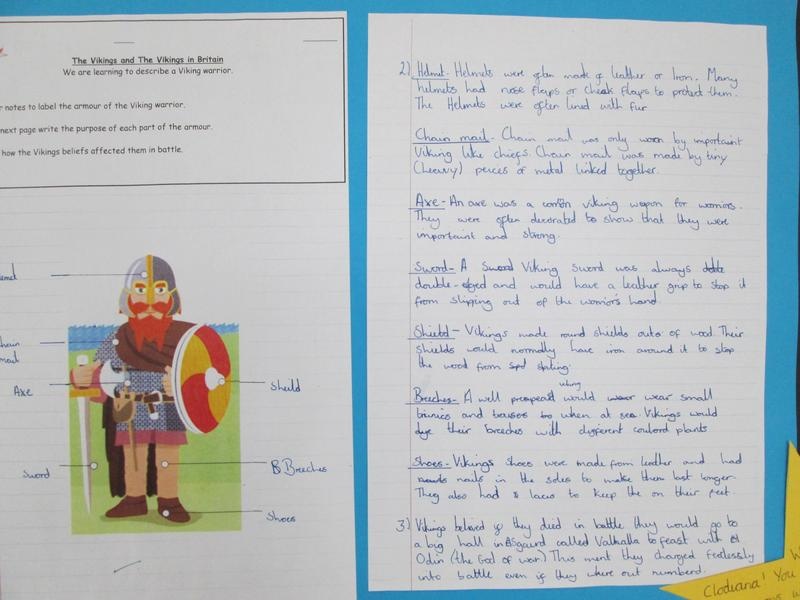 The Vikings and The Vikings in Britain
We are learning to describe a Viking warrior.
notes to label the armour of the Viking warrior.
next page write the purpose of each part of the armour.
how the Vikings beliefs affected them in battle.
Axe
Sword
Sheild
Breeches
Shoes
2) Helmet - Helmets were often made of leather or Iron. Many
helmets had nose flaps or cheek flaps to protect them.
The Helmets were often lined with fur
Chain mail - Chain mail was only worn by importaint
Viking like chiefs. Chain mail was made by tiny
(heavy) peices of metal linked together.
Axe - An axe was a common viking weapon for worriors.
They were often decorated to show that they were
importaint and strong.
Sword - A Viking Sword was always
double-edged and would have a leather grip to stop it
from slipping out of the worriors hand.
Shield - Vikings made round shields outs of wood. Their
shields would normally have iron around it to stop
the wood from
viking
Breeches - A well would wear small
and when at sea. Vikings would
dye their breeches with coulord plants
Shoes - Vikings shoes were made from leather and had
nails in the soles to make them last longer.
They also had laces to keep the on their feet.
3) Vikings beleved if they died in battle they would go to
a big hall in Asgaurd called Valhalla to feast with
Odin (the God of war.) This ment they charged feerlessly
into battle even if they where out numberd.
Clodiana! You